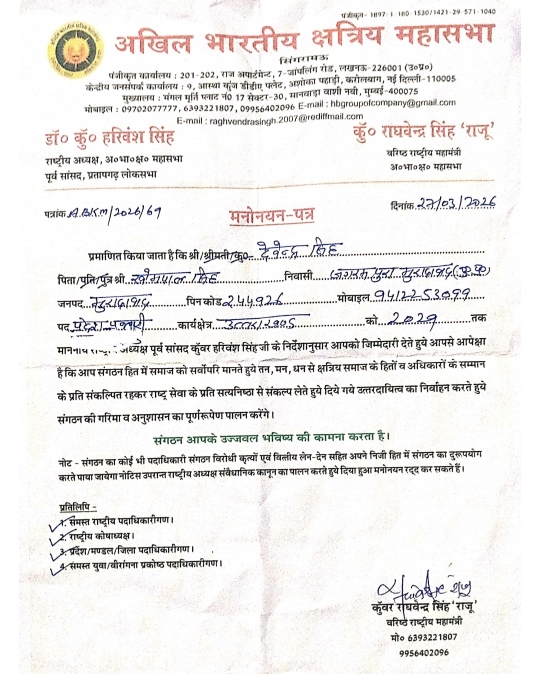 पंजीकृत- 1897-1-180-1530/1421-29-571-1040
अखिल भारतीय क्षत्रिय महासभा
सिंगरामऊ
पंजीकृत कार्यालय : 201-202, राज अपार्टमेन्ट, 7-जापलिंग रोड, लखनऊ-226001 (उ०प्र०)
केन्द्रीय जनसंपर्क कार्यालय : 9, आस्था कुंज डीडीए फ्लैट, अशोका पहाड़ी, करोलबाग, नई दिल्ली-110005
मुख्यालय : मंगल मूर्ति प्लाट नं0 17 सेक्टर-30, सानपाड़ा वाशी नवी, मुम्बई-400075
मोबाइल : 09702077777, 6393221807, 09956402096 E-mail : hbgroupofcompany@gmail.com
E-mail : raghvendrasingh.2007@rediffmail.com
डॉ० कुँ० हरिवंश सिंह
राष्ट्रीय अध्यक्ष, अ०भा०क्ष० महासभा
पूर्व सांसद, प्रतापगढ़ लोकसभा
कुँ० राघवेन्द्र सिंह 'राजू'
वरिष्ठ राष्ट्रीय महामंत्री
अ०भा०क्ष० महासभा
पत्रांक A.B.K.M/2026/69
दिनांक 27/03/2026
मनोनयन-पत्र
प्रमाणित किया जाता है कि श्री/श्रीमती/कु०- देवेन्द्र सिंह
पिता/पति/पुत्र श्री सिंह निवासी मुरादाबाद (उ.प्र.)
जनपद मुरादाबाद पिन कोड 244926 मोबाइल 9412253099
पद प्रदेश-प्रभारी कार्यक्षेत्र उत्तराखण्ड को 2029 तक
माननीय अध्यक्ष पूर्व सांसद कुँवर हरिवंश सिंह जी के निर्देशानुसार आपको जिम्मेदारी देते हुये आपसे आपेक्षा
है कि आप संगठन हित में समाज को सर्वोपरि मानते हुये तन, मन, धन से क्षत्रिय समाज के हितों व अधिकारों के सम्मान
के प्रति संकल्पित रहकर राष्ट्र सेवा के प्रति सत्यनिष्ठा से संकल्प लेते हुये दिये गये उत्तरदायित्व का निर्वाहन करते हुये
संगठन की गरिमा व अनुशासन का पूर्णरूपेण पालन करेंगे।
संगठन आपके उज्जवल भविष्य की कामना करता है।
नोट - संगठन का कोई भी पदाधिकारी संगठन विरोधी कृत्यों एवं वित्तीय लेन-देन सहित अपने निजी हित में संगठन का दुरूपयोग
करते पाया जायेगा नोटिस उपरान्त राष्ट्रीय अध्यक्ष संवैधानिक कानून का पालन करते हुये दिया हुआ मनोनयन रद्द कर सकते हैं।
प्रतिलिपि -
1. समस्त राष्ट्रीय पदाधिकारीगण।
2. राष्ट्रीय कोषाध्यक्ष।
3. प्रदेश/मण्डल/जिला पदाधिकारीगण।
4. समस्त युवा/वीरांगना प्रकोष्ठ पदाधिकारीगण।
कुँवर राघवेन्द्र सिंह 'राजू'
वरिष्ठ राष्ट्रीय महामंत्री
मो० 6393221807
9956402096